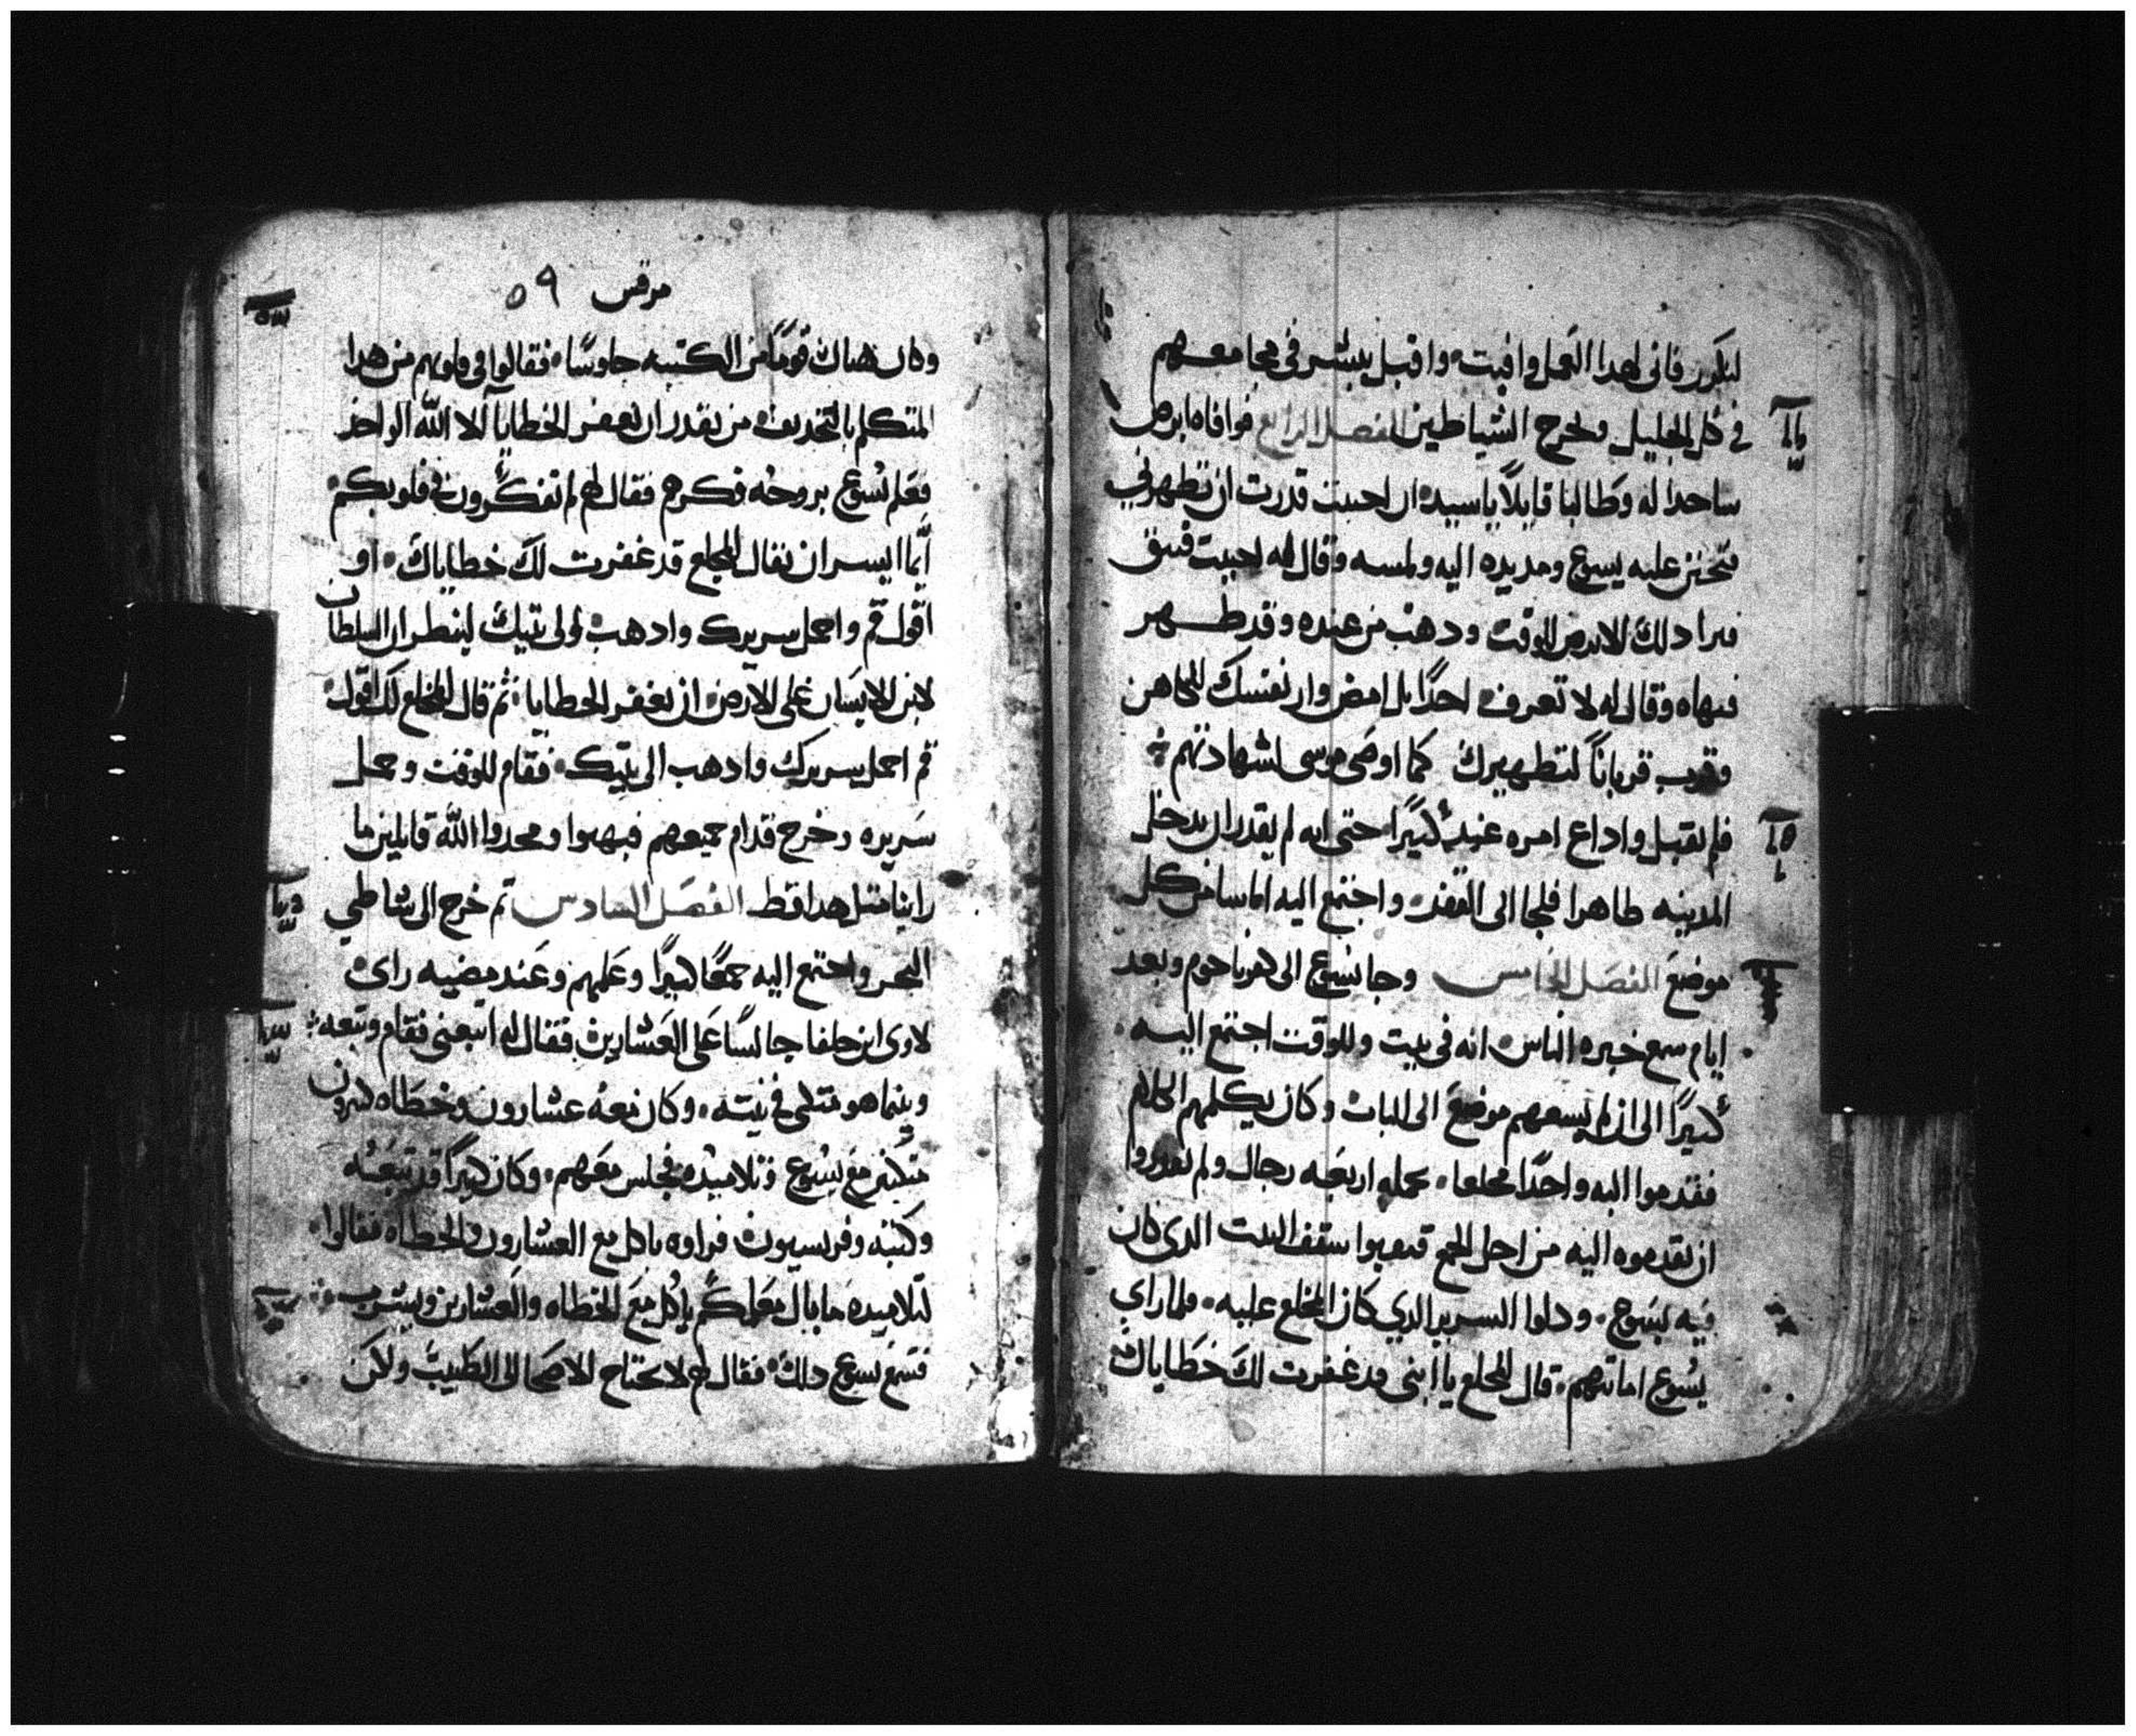 لنكرز فاني لهدا العمل وافيت واقبل يبشر في مجامعهم
في كل الجليل ولخرج الشياطين الفصل الرابع فوافاه ابرص
ساجدا له وطالبا قايلاً يا سيد ان احببت قدرت ان تطهرني
فتحنن عليه يسوع ومد يده اليه ولمسه وقال له احببت فتنق
فبرا دلك الابرص للوقت ودهب من عنده وقد طهر
فنهاه وقال له لا تعرف احدًا بل امض وار نفسك للكاهن
وقرب قرباناً لتطهيرك كما اوصى موسى لشهادتهم
فلم يقبل واداع امره عند كثيرًا حتى انه لم يقدر ان يدخل
المدينه ظاهرا فلجا الى القفر واجتمع اليه اناسا من كل
موضع الفصل الخامس وجا يسوع الى كفرناحوم وبعد
ايام سمع خبره الناس انه في بيت وللوقت اجتمع اليه
كثيرًا الى ان لم يسعهم موضع الى الباب وكان يكلمهم الكلام
فقدموا اليه واحدًا مخلعا يحمله اربعه رجال ولم يقدروا
ان يقدموه اليه من اجل الجمع فنقبوا سقف البيت الدي كان
فيه يسوع ودلوا السرير الدي كان المخلع عليه فلما راي
يسُوع امانتهم قال للمخلع يا ابني قد غفرت لك خطاياك
مرقس ٥٩
وكان هناك قومًا من الكتبه جلوسًا فقالوا في قلوبهم من هدا
المتكلم بالتجديف من يقدر ان يغفر الخطايا الا الله الواحد
فعلم يسُوع بروحُه فكرهم فقال لهم لم تفكرون في قلوبكم
أيما ايسر ان يقال للمخلع قد غفرت لك خطاياك او
اقول قم واحمل سريرك وادهب الى بيتك لينظر ان السلطان
لابن الانسان على الارض ان يغفر الخطايا ثم قال للمخلع لك اقول
قم احمل سريرك وادهب الى بيتك فقام للوقت وحمل
سريره وخرج قدام جميعهم فبهتوا ومجدوا الله قايلين ما
راينا مثل هدا قط الفصل السادس ثم خرج الى شاطي
البحر واجتمع اليه جمعًا كثيرًا وعلمهم وعند مضيه راى
لاوى ابن حلفا جالسًا على العشارين فقال له اتبعني فقام وتبعه
وبينما هو متكى في بيته وكان معه عشارون وخطاه كثيرون
متكين مع يسُوع وتلاميذه فجلس معهم وكان كثيرًا قد تبعُه
وكتبه وفريسيون فراوه ياكل مع العشارون والخطاه فقالوا
لتلاميده ما بال معلمكم ياكل مع الخطاه والعشارين ويشرب
فسمع يسوع دلك فقال لهم لا يحتاج الاصحا الى الطبيب ولكن